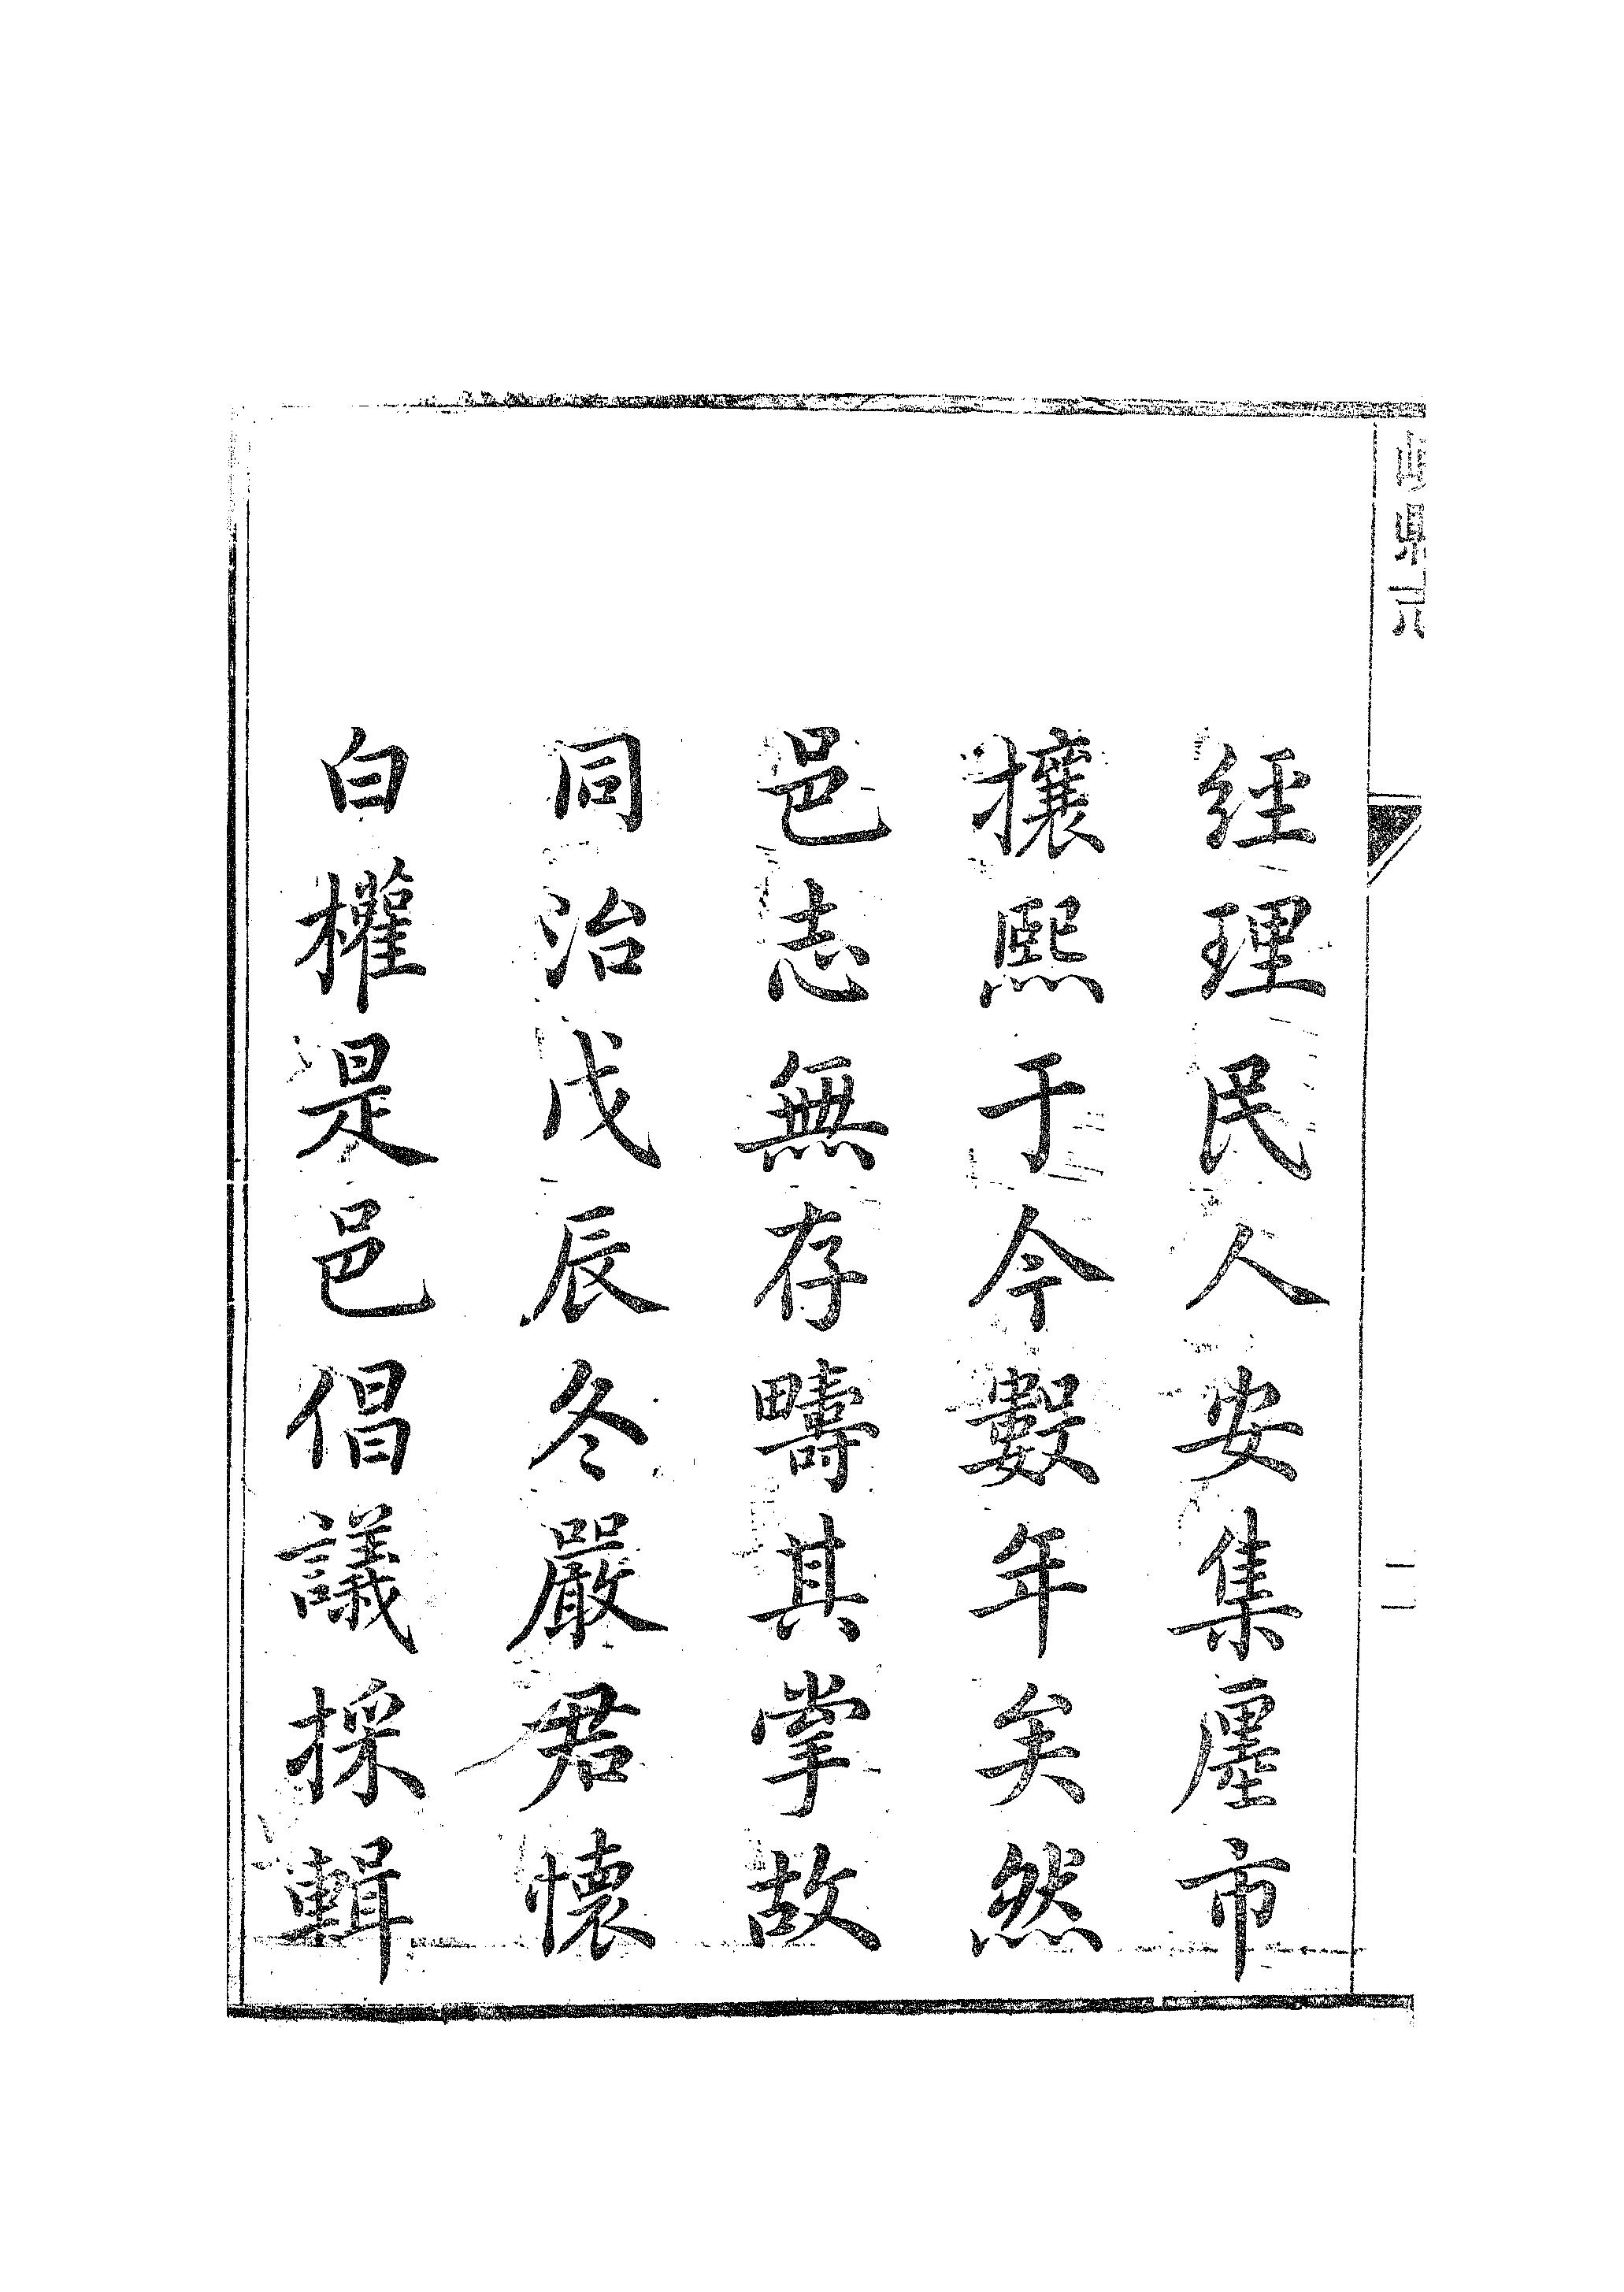 二
经理民人安集廛市
攘熙于今數年矣然
邑志無存疇其掌故
同治戊辰冬嚴君懷
白權是邑倡議採輯